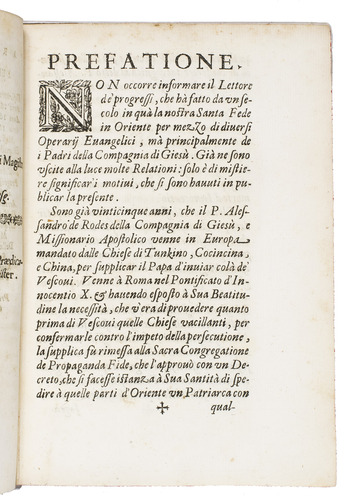 PREFATIONE.
NON occorre informare il Lettore
de' progressi, che hà fatto da vn se-
colo in quà la nostra Santa Fede
in Oriente per mezzo di diuersi
Operarij Euangelici, mà principalmente de
i Padri della Compagnia di Giesù. Già ne sono
vscite alla luce molte Relationi: solo è di mistie-
re significar i motiui, che si sono hauuti in pu-
blicar la presente.
Sono già vinticinque anni, che il P. Ales-
sandro de Rodes della Compagnia di Giesù, e
Missionario Apostolico venne in Europa
mandato dalle Chiese di Tunkino, Cocincina,
e China, per supplicar il Papa d'inuiar colà de'
Vescoui. Venne à Roma nel Pontificato d'In-
nocentio X. & hauendo esposto à Sua Beatitu-
dine la necessità, che v'era di prouedere quanto
prima di Vescoui quelle Chiese vacillanti, per
confermarle contro l'impeto della persecutione,
la supplica fù rimessa alla Sacra Congregatione
de Propaganda Fide, che l'approuò con vn De-
creto, che si facesse istanza à Sua Santità di spe-
dire à quelle parti d'Oriente vn Patriarca con
qual-